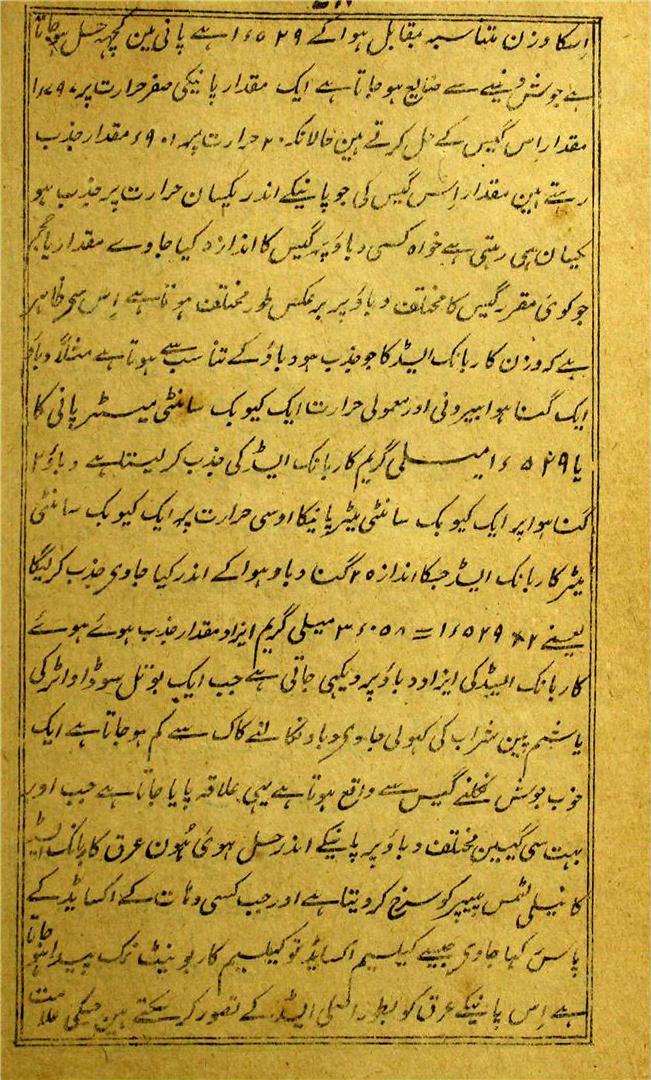 اِسکا وزن متناسبہ مقابل ہوا کے ۱٫۵۲۹ ہے پانی مین کچہہ حل ہو جاتا
ہے جوش دینے سے ضایع ہو جاتا ہے ایک مقدار پانیکی صفر حرارت پر ۱٫۷۹۷
مقدار اِس گیس کے حل کرتے ہین حالانکہ ۲۰ حرارت پر ۰٫۹۰۱ مقدار جذب
رہتے ہین مقدار اِس گیس کی جو پانیکے اندر یکسان حرارت پر جذب ہو
یکسان ہی رہتی ہے خواہ کسی دباؤ پہ گیس کا اندازہ کیا جاوے مقدار یا حجم
جو کوئی مقرر گیس کا مختلف دباؤ پر برعکس طور مختلف ہوتا ہے اِس سے ظاہر
ہے کہ وزن کاربانک ایسڈ کا جو جذب ہو دباؤ کے تناسب سے ہوتا ہے مثلاً دباؤ
ایک گنا ہوا بیرونی اور معمولی حرارت ایک کیوبک سانٹی میٹر پانی کا
یا ۱٫۵۲۹ میلی گریم کاربانک ایسڈ کی جذب کر لیتا ہے دباؤ ۲
گنا ہوا پر ایک کیوبک سانٹی میٹر پانیکا اوسی حرارت پر ایک کیوبک سانٹی
میٹر کاربانک ایسڈ جسکا اندازہ ۲ گنا دباو ہوا کے اندر کیا جاوی جذب کریگا
یعنے ۲ × ۱٫۵۲۹ = ۳٫۰۵۸ میلی گریم ایزاد مقدار جذب ہوئے ہوئے
کاربانک ایسڈ کی ایزاد دباؤ پر دیکہی جاتی ہے جب ایک بوتل سوڈا واٹر کی
یا شم پین شراب کی کہولی جاوی دباو نکالنے کاک سے کم ہو جاتا ہے ایک
خوب جوش نکلنے گیس سے واقع ہوتا ہے یہی علاقہ پایا جاتا ہے جب اور
بہت سی گیسین مختلف دباؤ پر پانیکے اندر حل ہوئی ہُون عرق کاربانک ایسڈ
کا نیلی لٹمس پیپر کو سرخ کر دیتا ہے اور جب کسی دہات کے اکسایڈ کے
پاس رکہا جاوی جیسے کیلسیم اکسایڈ تو کیلسیم کاربونیٹ نمک پیدا ہو جاتا
ہے اِس پانیکے عرق کو بطور اصلی ایسڈ کے تصور کر سکتے ہین جسکی علامت